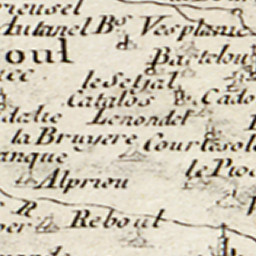 rieusel
Autanel Bs Vesplanie
oul Bartelou
le Setjal
Catalos Cado
dalie Lenondel
la Bruyere Courtesole
anque le Pioc
Alpriou
R Rebout